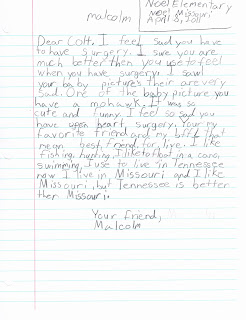 Noel Elementary
Noel Missouri
malcolm April 5, 2011
Dear Colt. I feel sad you have
to have surgery. I sure you are
much better then you use to feel
when you have surgery. I saw
your baby pictures their are very
sad. One of the baby picture you
have a mohawk. It was so
cute and funny. I feel so sad you
have open heart surgery. Your my
favorite friend and my bffl that
mean best friend for live. I like
fishing, hunting, I like to float in a cano,
swimming. I use to live in Tennessee
now I live in Missouri and I like
Missouri, but Tennessee is better
then Missouri.
Your friend,
Malcolm